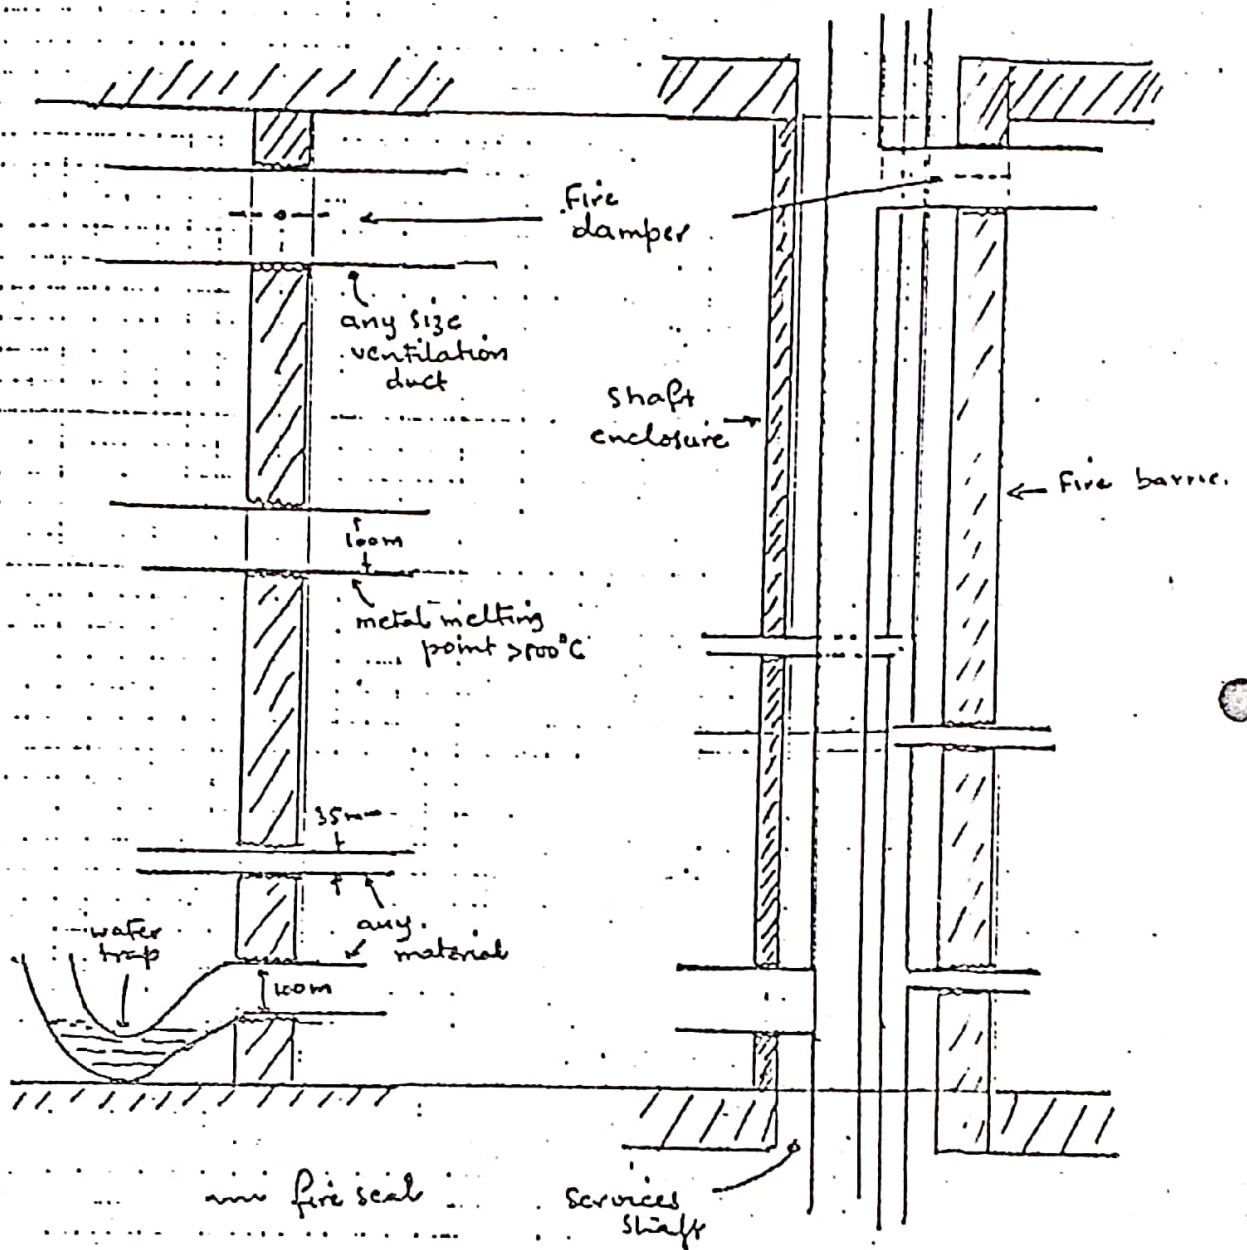 Fire
damper
any size
ventilation
duct
shaft
enclosure
Fire barrie.
100m
metal melting
point >800°C
35m
any
material
water
trap
100m
fire seal
services
shaft